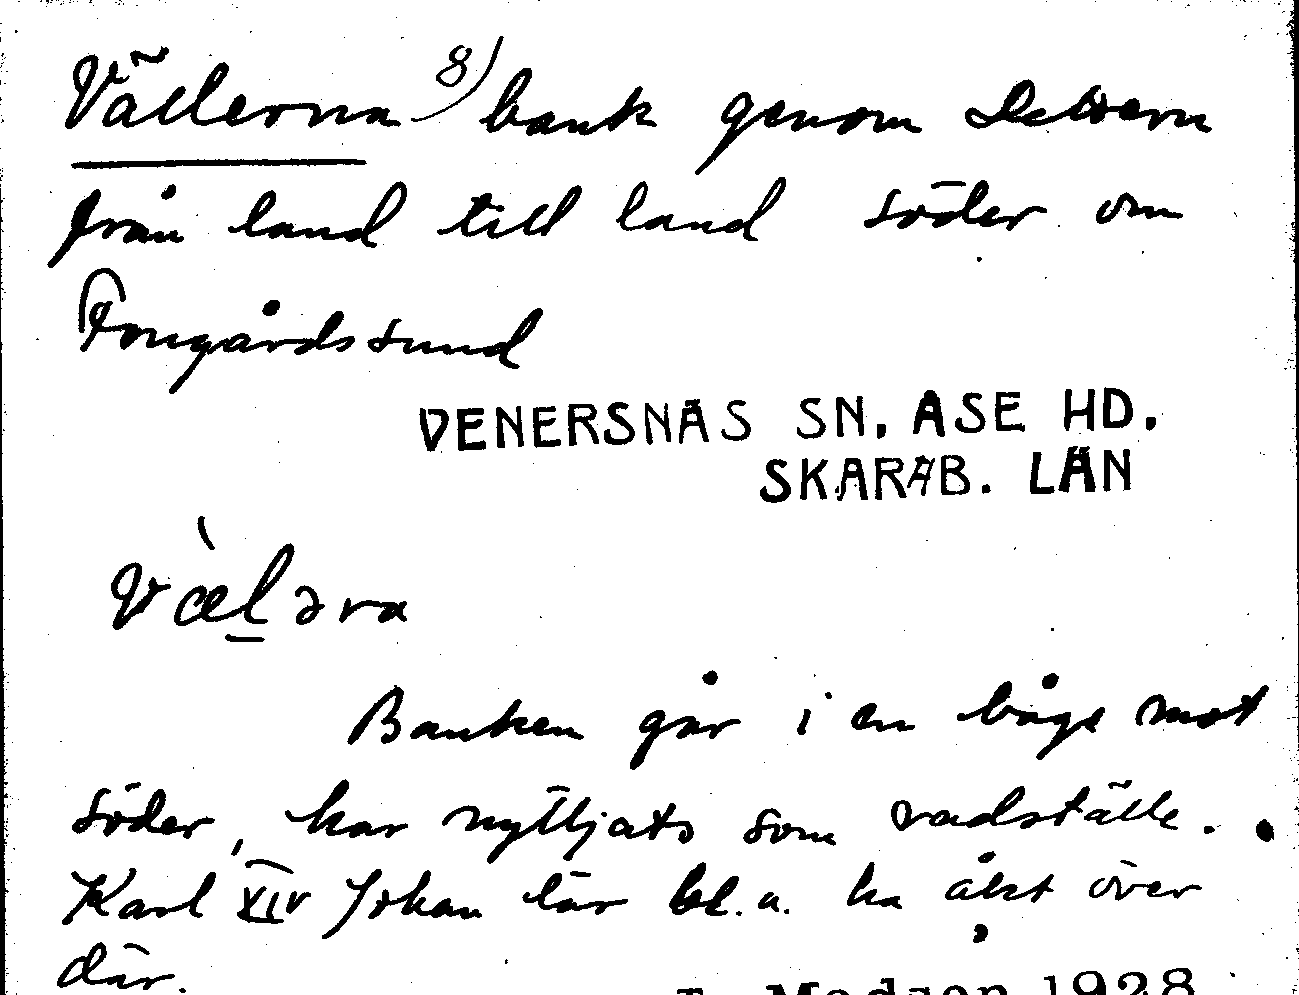 Vällerna 8) bank genom Dettern
från land till land söder om
Frongårdssund
VENERSNÄS SN. ASE HD.
SKARAB. LÄN
Væ̀l̲əra
Banken går i en båge mot
söder, har nyttjats som vadställe.
Karl XIV Johan lär bl.a. ha åkt över
där.
Modson 1928